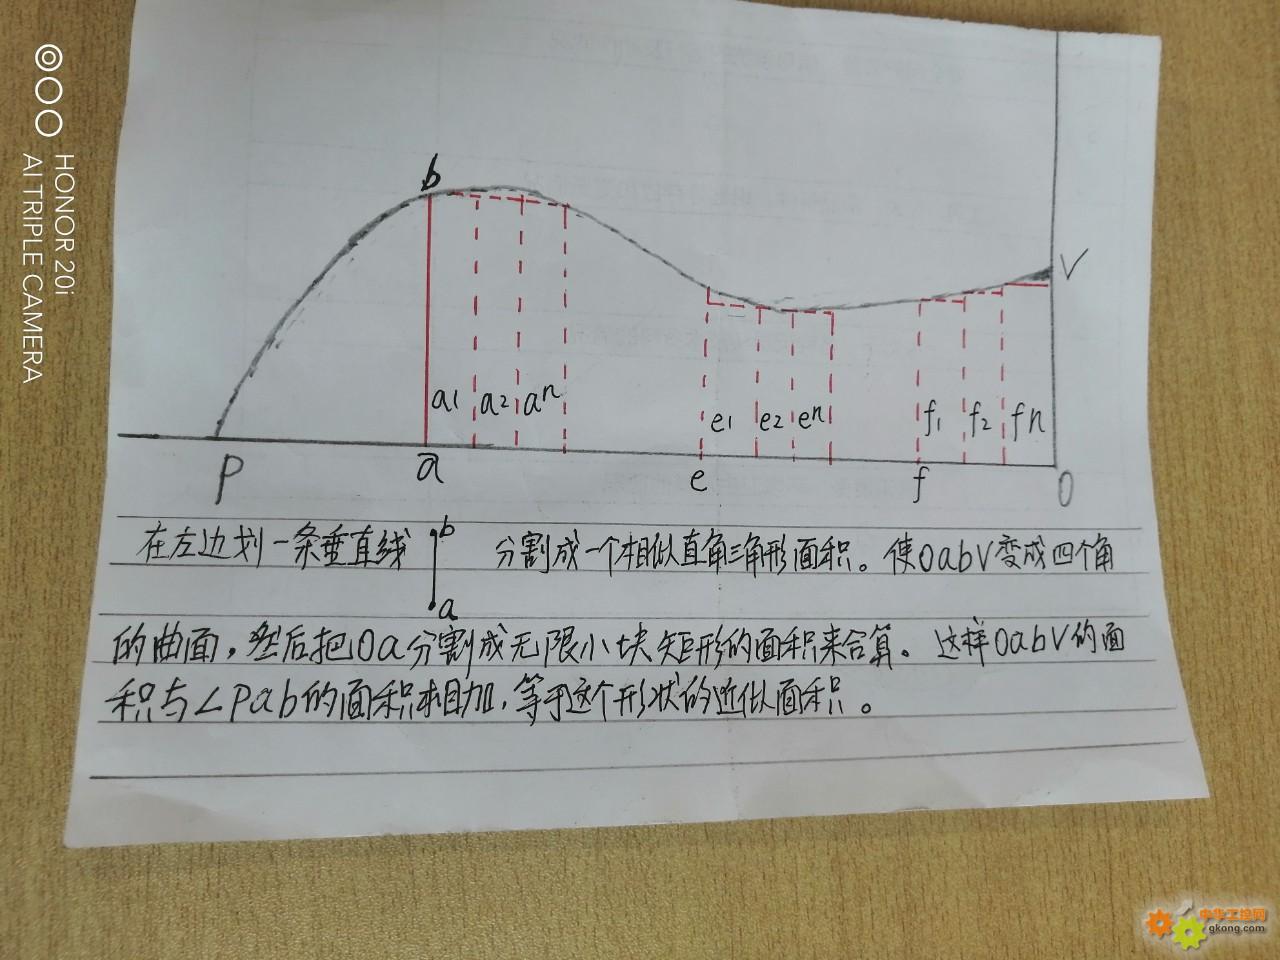 HONOR 20i
AI TRIPLE CAMERA
b
V
a1 a2 an e1 e2 en f1 f2 fn
P a e f O
在左边划一条垂直线 b a 分割成一个相似直角三角形面积。使OabV变成四个角
的曲面,然后把Oa分割成无限小块矩形的面积来合算。这样OabV的面
积与∠Pab的面积相加,等于这个形状的近似面积。
中华工控网
gkong.com